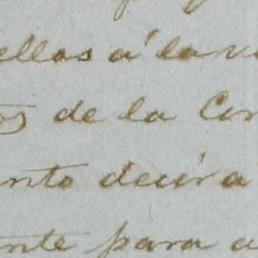 ellas á la v
os de la Con
nto decir a
nte para a